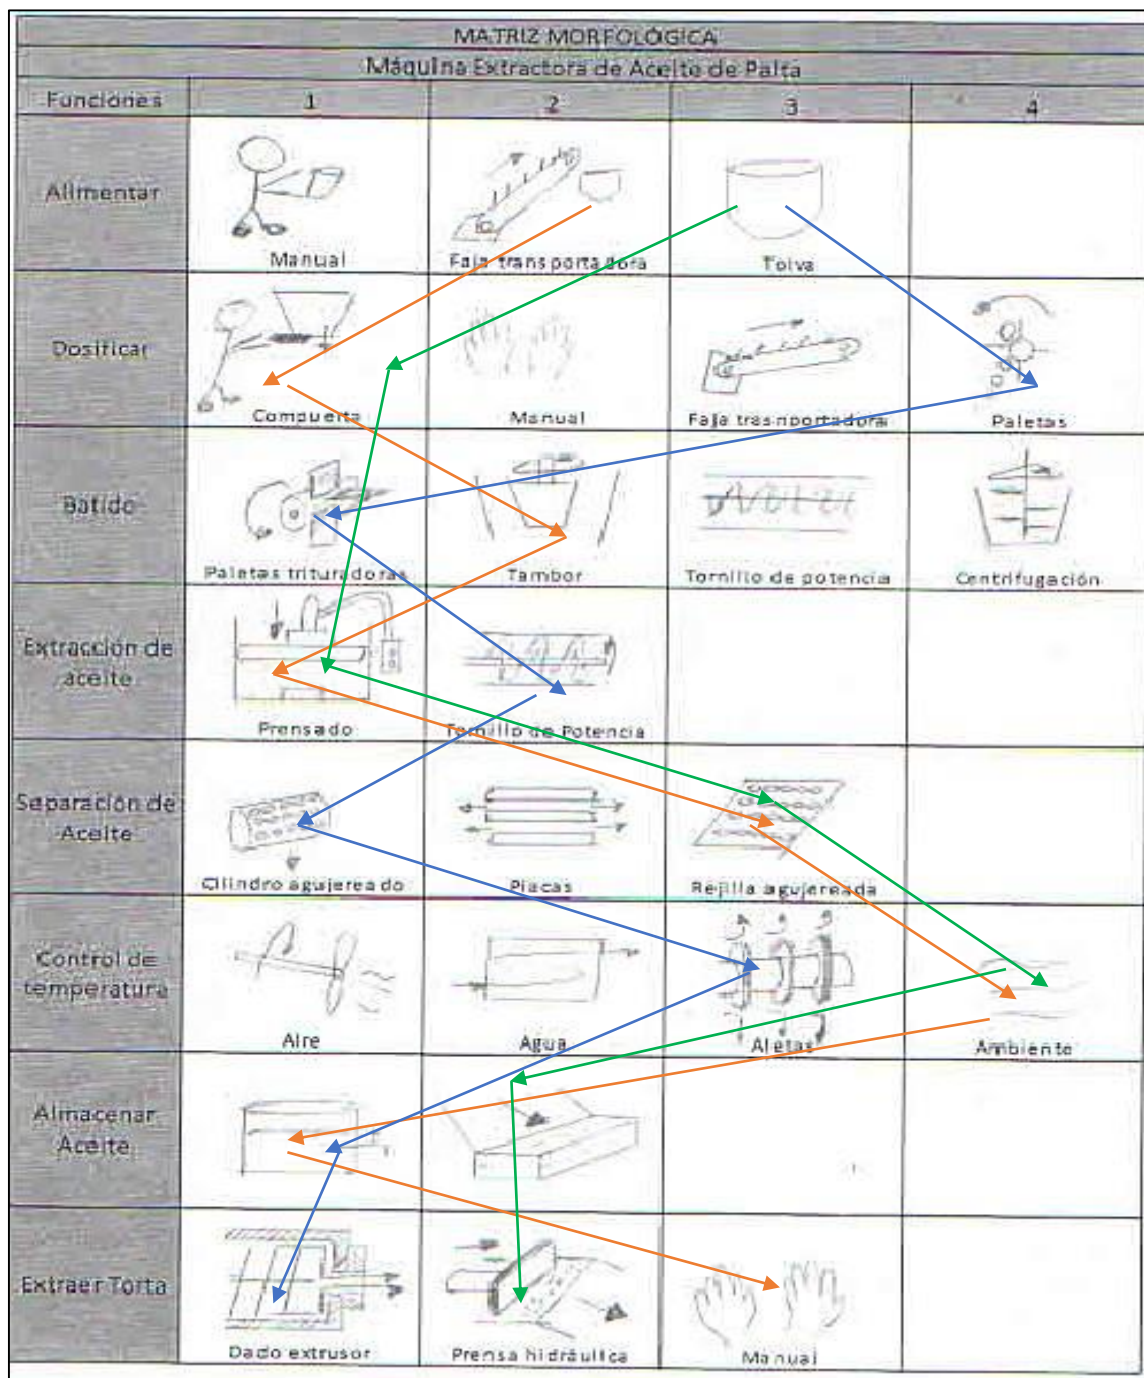 MATRIZ MORFOLÓGICA
Máquina Extractora de Aceite de Palta
Funciones 1 2 3 4
Alimentar
Manual Faja transportadora Tolva
Dosificar
Compuerta Manual Faja trasnportadora Paletas
Batido
Paletas trituradoras Tambor Tornillo de potencia Centrifugación
Extracción de
aceite
Prensado Tornillo de Potencia
Separación de
Aceite
Cilindro agujereado Placas Rejilla agujereada
Control de
temperatura
Aire Agua Aletas Ambiente
Almacenar
Aceite
Extraer Torta
Dado extrusor Prensa hidráulica Manual